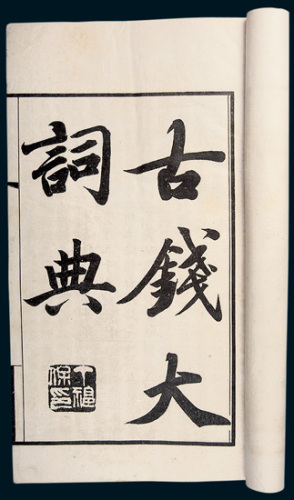 古錢大
詞典
丁福
保印